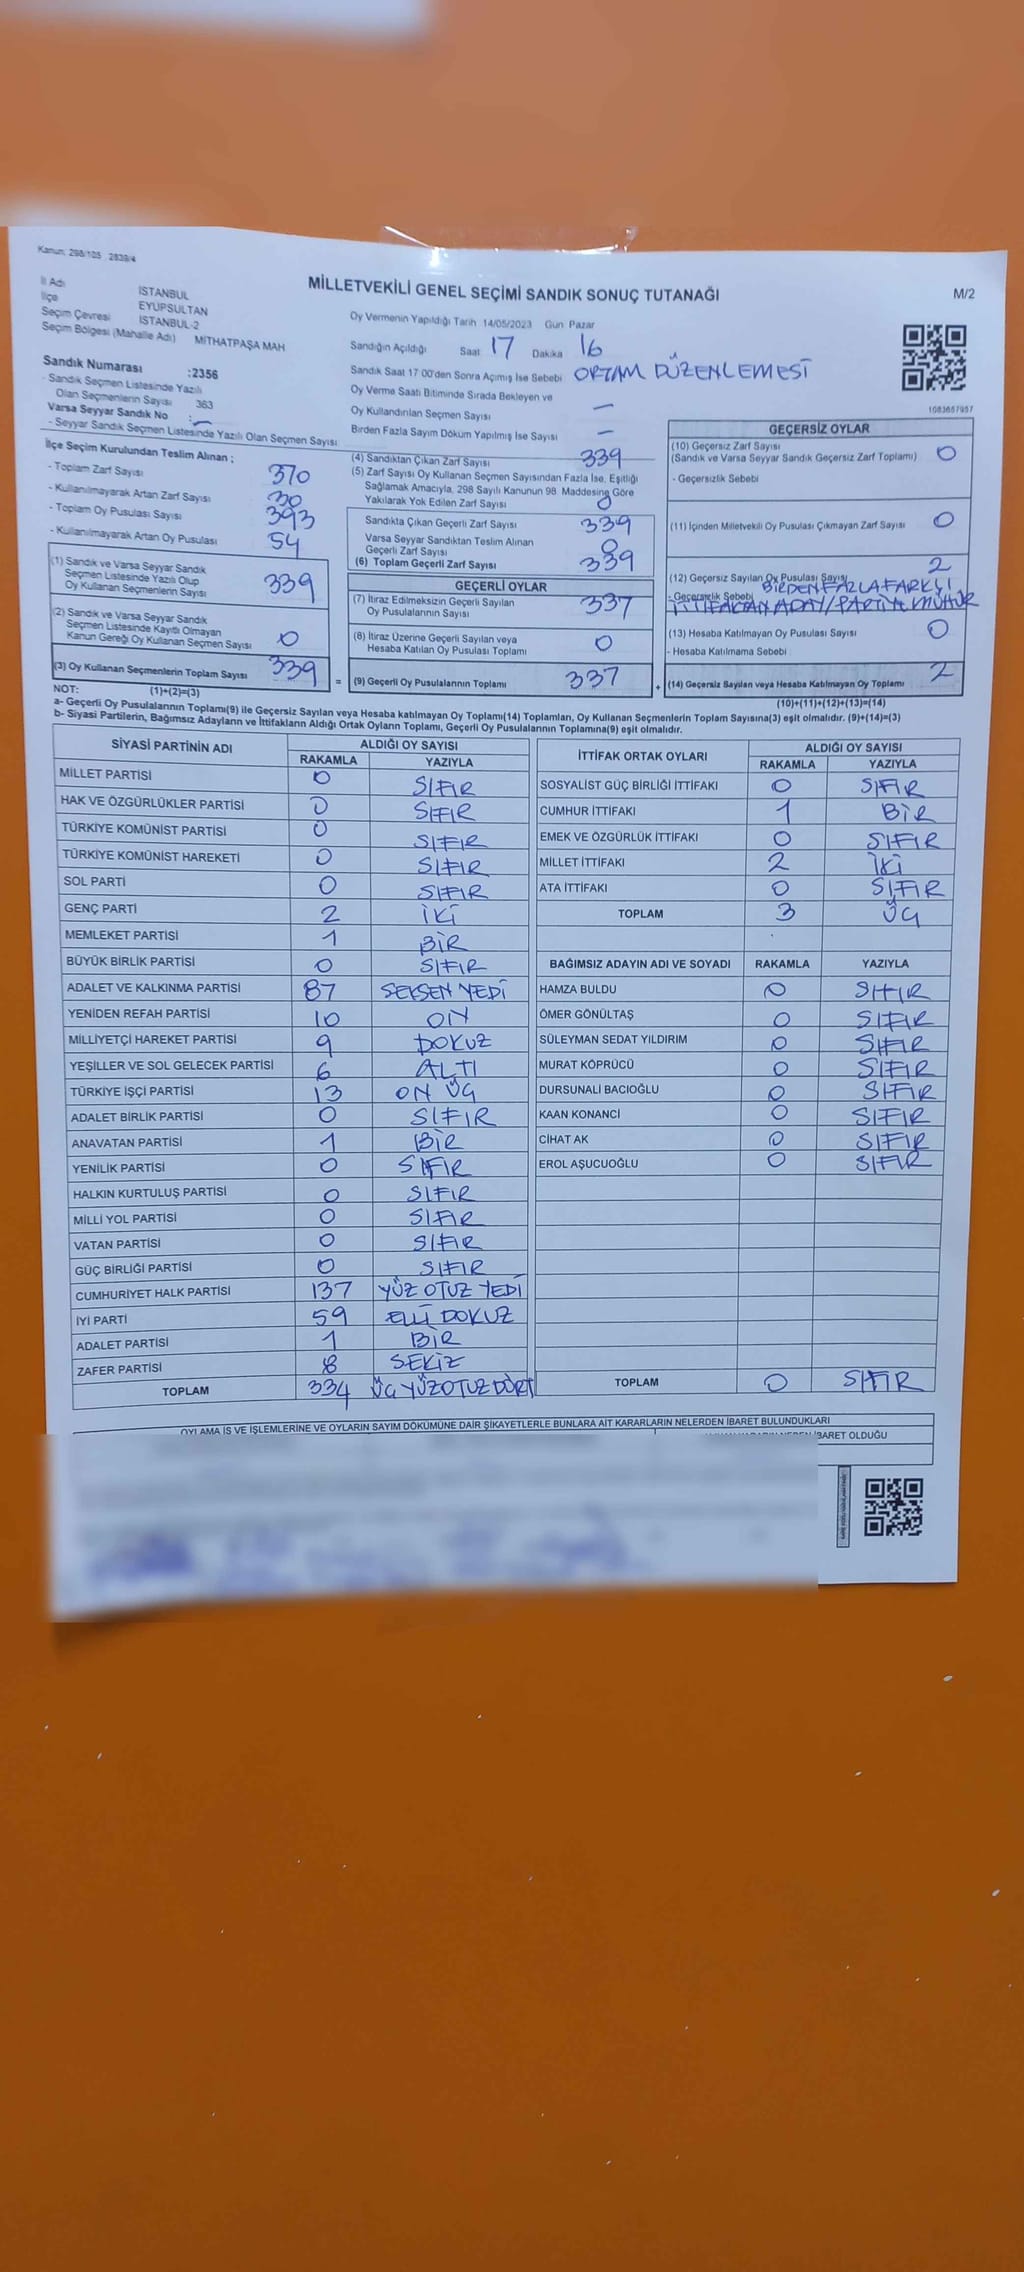 Kanun: 298/105 2839/4
MİLLETVEKİLİ GENEL SEÇİMİ SANDIK SONUÇ TUTANAĞI
M/2
İl Adı İSTANBUL
İlçe EYÜPSULTAN
Seçim Çevresi İSTANBUL-2
Seçim Bölgesi (Mahalle Adı) MİTHATPAŞA MAH
Oy Vermenin Yapıldığı Tarih 14/05/2023 Gün Pazar
Sandığın Açıldığı Saat 17 Dakika 16
Sandık Saat 17 00'den Sonra Açımış İse Sebebi ORTAM DÜZENLEMESİ
Oy Verme Saati Bitiminde Sırada Bekleyen ve
Oy Kullandırılan Seçmen Sayısı —
Birden Fazla Sayım Döküm Yapılmış İse Sayısı —
1083687957
Sandık Numarası :2356
- Sandık Seçmen Listesinde Yazılı
Olan Seçmenlerin Sayısı 363
Varsa Seyyar Sandık No : —
- Seyyar Sandık Seçmen Listesinde Yazılı Olan Seçmen Sayısı
İlçe Seçim Kurulundan Teslim Alınan ;
- Toplam Zarf Sayısı 370
- Kullanılmayarak Artan Zarf Sayısı 30
- Toplam Oy Pusulası Sayısı 393
- Kullanılmayarak Artan Oy Pusulası 54
(1) Sandık ve Varsa Seyyar Sandık
Seçmen Listesinde Yazılı Olup
Oy Kullanan Seçmenlerin Sayısı 339
(2) Sandık ve Varsa Seyyar Sandık
Seçmen Listesinde Kayıtlı Olmayan
Kanun Gereği Oy Kullanan Seçmen Sayısı 0
(3) Oy Kullanan Seçmenlerin Toplam Sayısı 339
(1)+(2)=(3)
(4) Sandıktan Çıkan Zarf Sayısı 339
(5) Zarf Sayısı Oy Kullanan Seçmen Sayısından Fazla İse, Eşitliği
Sağlamak Amacıyla, 298 Sayılı Kanunun 98 Maddesine Göre
Yakılarak Yok Edilen Zarf Sayısı 0
Sandıkta Çıkan Geçerli Zarf Sayısı 339
Varsa Seyyar Sandıktan Teslim Alınan
Geçerli Zarf Sayısı 0
(6) Toplam Geçerli Zarf Sayısı 339
GEÇERLİ OYLAR
(7) İtiraz Edilmeksizin Geçerli Sayılan
Oy Pusulalarının Sayısı 337
(8) İtiraz Üzerine Geçerli Sayılan veya
Hesaba Katılan Oy Pusulası Toplamı 0
= (9) Geçerli Oy Pusulalarının Toplamı 337
GEÇERSİZ OYLAR
(10) Geçersiz Zarf Sayısı
(Sandık ve Varsa Seyyar Sandık Geçersiz Zarf Toplamı) 0
- Geçersizlik Sebebi
(11) İçinden Milletvekili Oy Pusulası Çıkmayan Zarf Sayısı 0
(12) Geçersiz Sayılan Oy Pusulası Sayısı 2
- Geçersizlik Sebebi BİRDEN FAZLA FARKLI
İTTİFAKTAN ADAY/PARTİYE MÜHÜR
(13) Hesaba Katılmayan Oy Pusulası Sayısı 0
- Hesaba Katılmama Sebebi
+ (14) Geçersiz Sayılan veya Hesaba Katılmayan Oy Toplamı 2
(10)+(11)+(12)+(13)=(14)
NOT:
a- Geçerli Oy Pusulalarının Toplamı(9) ile Geçersiz Sayılan veya Hesaba katılmayan Oy Toplamı(14) Toplamları, Oy Kullanan Seçmenlerin Toplam Sayısına(3) eşit olmalıdır. (9)+(14)=(3)
b- Siyasi Partilerin, Bağımsız Adayların ve İttifakların Aldığı Ortak Oyların Toplamı, Geçerli Oy Pusulalarının Toplamına(9) eşit olmalıdır.
SİYASİ PARTİNİN ADI ALDIĞI OY SAYISI
RAKAMLA YAZIYLA
MİLLET PARTİSİ 0 SIFIR
HAK VE ÖZGÜRLÜKLER PARTİSİ 0 SIFIR
TÜRKİYE KOMÜNİST PARTİSİ 0 SIFIR
TÜRKİYE KOMÜNİST HAREKETİ 0 SIFIR
SOL PARTİ 0 SIFIR
GENÇ PARTİ 2 İKİ
MEMLEKET PARTİSİ 1 BİR
BÜYÜK BİRLİK PARTİSİ 0 SIFIR
ADALET VE KALKINMA PARTİSİ 87 SEKSEN YEDİ
YENİDEN REFAH PARTİSİ 10 ON
MİLLİYETÇİ HAREKET PARTİSİ 9 DOKUZ
YEŞİLLER VE SOL GELECEK PARTİSİ 6 ALTI
TÜRKİYE İŞÇİ PARTİSİ 13 ON ÜÇ
ADALET BİRLİK PARTİSİ 0 SIFIR
ANAVATAN PARTİSİ 1 BİR
YENİLİK PARTİSİ 0 SIFIR
HALKIN KURTULUŞ PARTİSİ 0 SIFIR
MİLLİ YOL PARTİSİ 0 SIFIR
VATAN PARTİSİ 0 SIFIR
GÜÇ BİRLİĞİ PARTİSİ 0 SIFIR
CUMHURİYET HALK PARTİSİ 137 YÜZ OTUZ YEDİ
İYİ PARTİ 59 ELLİ DOKUZ
ADALET PARTİSİ 1 BİR
ZAFER PARTİSİ 8 SEKİZ
TOPLAM 334 ÜÇ YÜZ OTUZ DÖRT
İTTİFAK ORTAK OYLARI ALDIĞI OY SAYISI
RAKAMLA YAZIYLA
SOSYALİST GÜÇ BİRLİĞİ İTTİFAKI 0 SIFIR
CUMHUR İTTİFAKI 1 BİR
EMEK VE ÖZGÜRLÜK İTTİFAKI 0 SIFIR
MİLLET İTTİFAKI 2 İKİ
ATA İTTİFAKI 0 SIFIR
TOPLAM 3 ÜÇ
BAĞIMSIZ ADAYIN ADI VE SOYADI RAKAMLA YAZIYLA
HAMZA BULDU 0 SIFIR
ÖMER GÖNÜLTAŞ 0 SIFIR
SÜLEYMAN SEDAT YILDIRIM 0 SIFIR
MURAT KÖPRÜCÜ 0 SIFIR
DURSUNALİ BACIOĞLU 0 SIFIR
KAAN KONANCİ 0 SIFIR
CİHAT AK 0 SIFIR
EROL AŞUCUOĞLU 0 SIFIR
TOPLAM 0 SIFIR
OYLAMA İŞ VE İŞLEMLERİNE VE OYLARIN SAYIM DÖKÜMÜNE DAİR ŞİKAYETLERLE BUNLARA AİT KARARLARIN NELERDEN İBARET BULUNDUKLARI
İBARET OLDUĞU